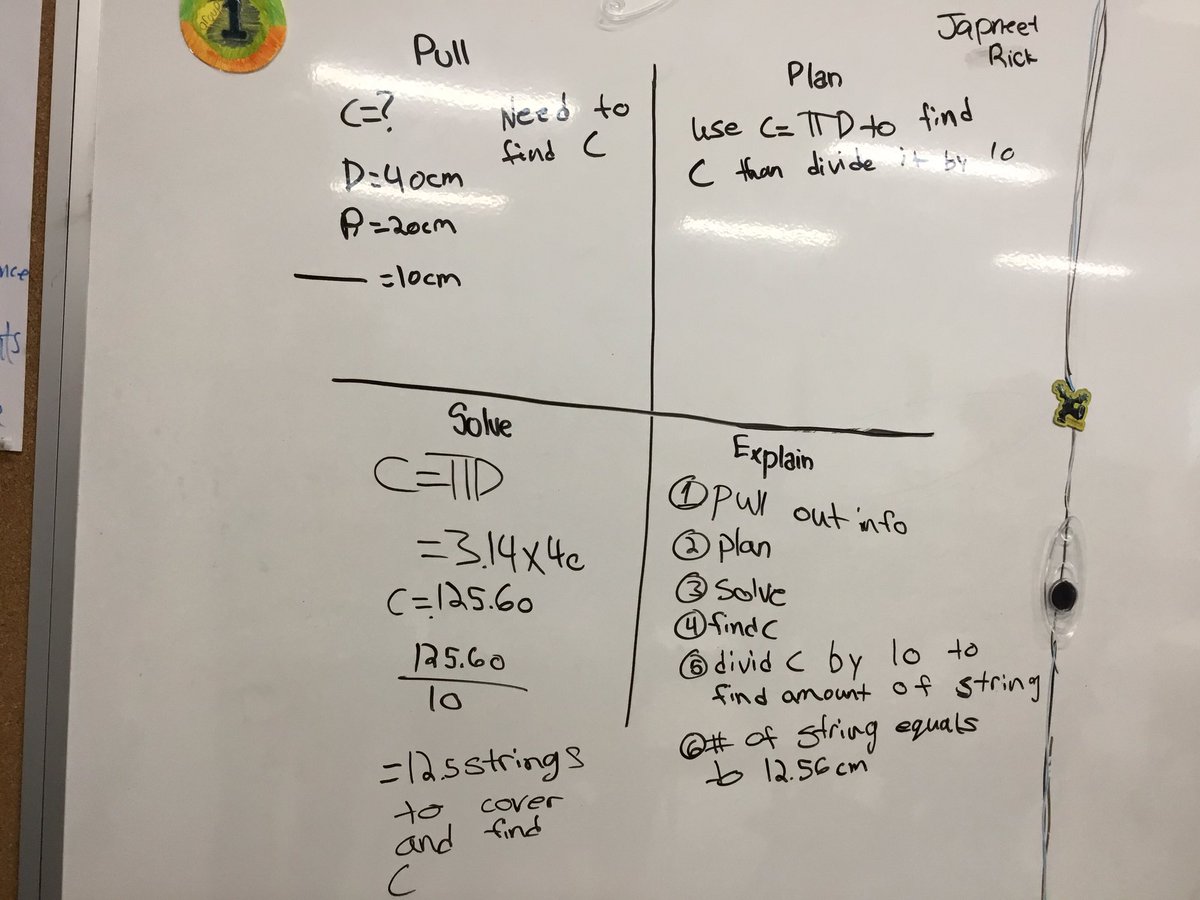 1
Japneet
Rick
Pull
C=?
Need to
find C
D=40cm
R=20cm
=10cm
Plan
use C=πD to find
C than divide it by 10
Solve
C=πD
=3.14x40
C=125.60
125.60
10
=12.5strings
to cover
and find
C
Explain
① Pull out info
② Plan
③ Solve
④ find C
⑤ divid C by 10 to
find amount of string
⑥ # of string equals
to 12.56cm